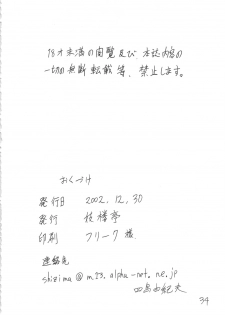 18才未満の閲覧及び、本誌内容の
一切の無断転載等、禁止します。
おくづけ
発行日 2002.12.30
発行 桟橋亭
印刷 フリーク様
連絡先
shizima@m23.alpha-net.ne.jp
四島由紀夫
34